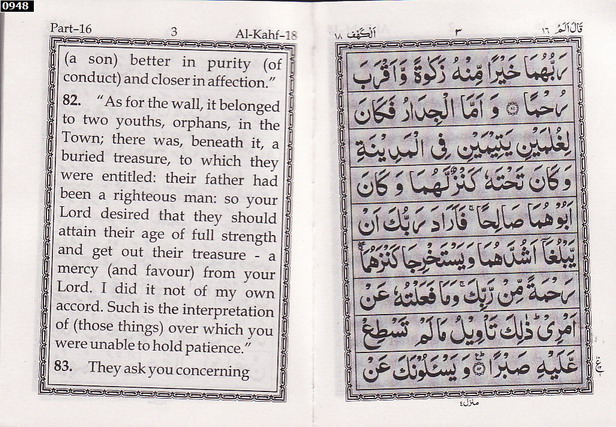 0948
Part-16 3 Al-Kahf-18
(a son) better in purity (of
conduct) and closer in affection.”
82. “As for the wall, it belonged
to two youths, orphans, in the
Town; there was, beneath it, a
buried treasure, to which they
were entitled: their father had
been a righteous man: so your
Lord desired that they should
attain their age of full strength
and get out their treasure - a
mercy (and favour) from your
Lord. I did it not of my own
accord. Such is the interpretation
of (those things) over which you
were unable to hold patience.”
83. They ask you concerning
قال الم ١٦ ٣ الكهف ١٨
رَبُّهُمَا خَيْرًا مِّنْهُ زَكٰوةً وَّاَقْرَبَ
رُحْمًا ۝ وَ اَمَّا الْجِدَارُ فَكَانَ
لِغُلٰمَيْنِ يَتِيْمَيْنِ فِي الْمَدِيْنَةِ
وَ كَانَ تَحْتَهٗ كَنْزٌ لَّهُمَا وَ كَانَ
اَبُوْهُمَا صَالِحًا ۚ فَاَرَادَ رَبُّكَ اَنْ
يَّبْلُغَاۤ اَشُدَّهُمَا وَيَسْتَخْرِجَا كَنْزَهُمَا
رَحْمَةً مِّنْ رَّبِّكَ ۚ وَمَا فَعَلْتُهٗ عَنْ
اَمْرِيْ ؕ ذٰلِكَ تَاْوِيْلُ مَا لَمْ تَسْطِعْ
عَّلَيْهِ صَبْرًا ۝ وَ يَسْـَٔلُوْنَكَ عَنْ
منزل ٤